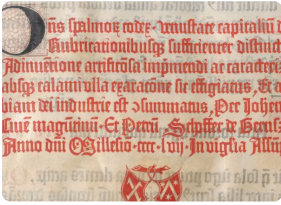 Pñs spalmoꝝ codex venustate capitaliū d
Rubricationibusqꝫ sufficienter distinct
Adinuentione artificiosa imprimendi ac caracteri
absqꝫ calami vlla exaracōne sic effigiatus, Et
biam dei industrie est ꝯsummatus, Per Johem
Ciuē magūtinū, Et Petrū Schoffer de Gerns
Anno dñi Millesio .cccc. lvij. In vigl̓ia Assū